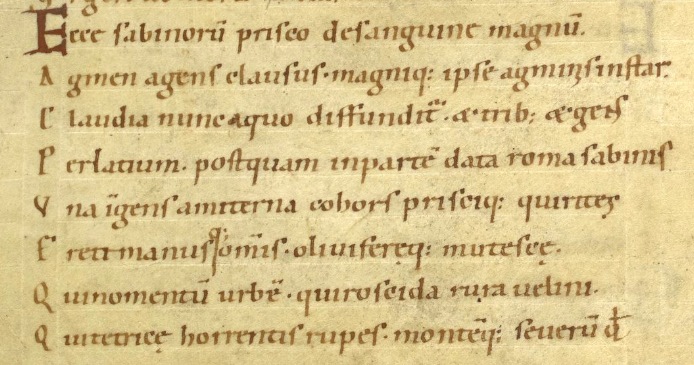 Ecce sabinorū prisco desanguine magnū.
A gmen agens clausus. magniq; ipse agminis instar.
C laudia nunc aquo diffundit̄. & trib; & gens
P er latium. postquam inpartē data roma sabinis
V na īgens amiterna cohors prisciq; quirites
E reti manus om̄is. oliuiferęq; mutescę.
Q ui nomentū urbē. qui roseida rura uelini.
Q ui tetricę horrentis rupes. montēq; seuerū